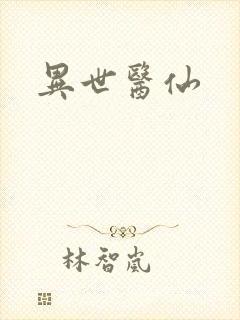 異世醫仙
林智嵐